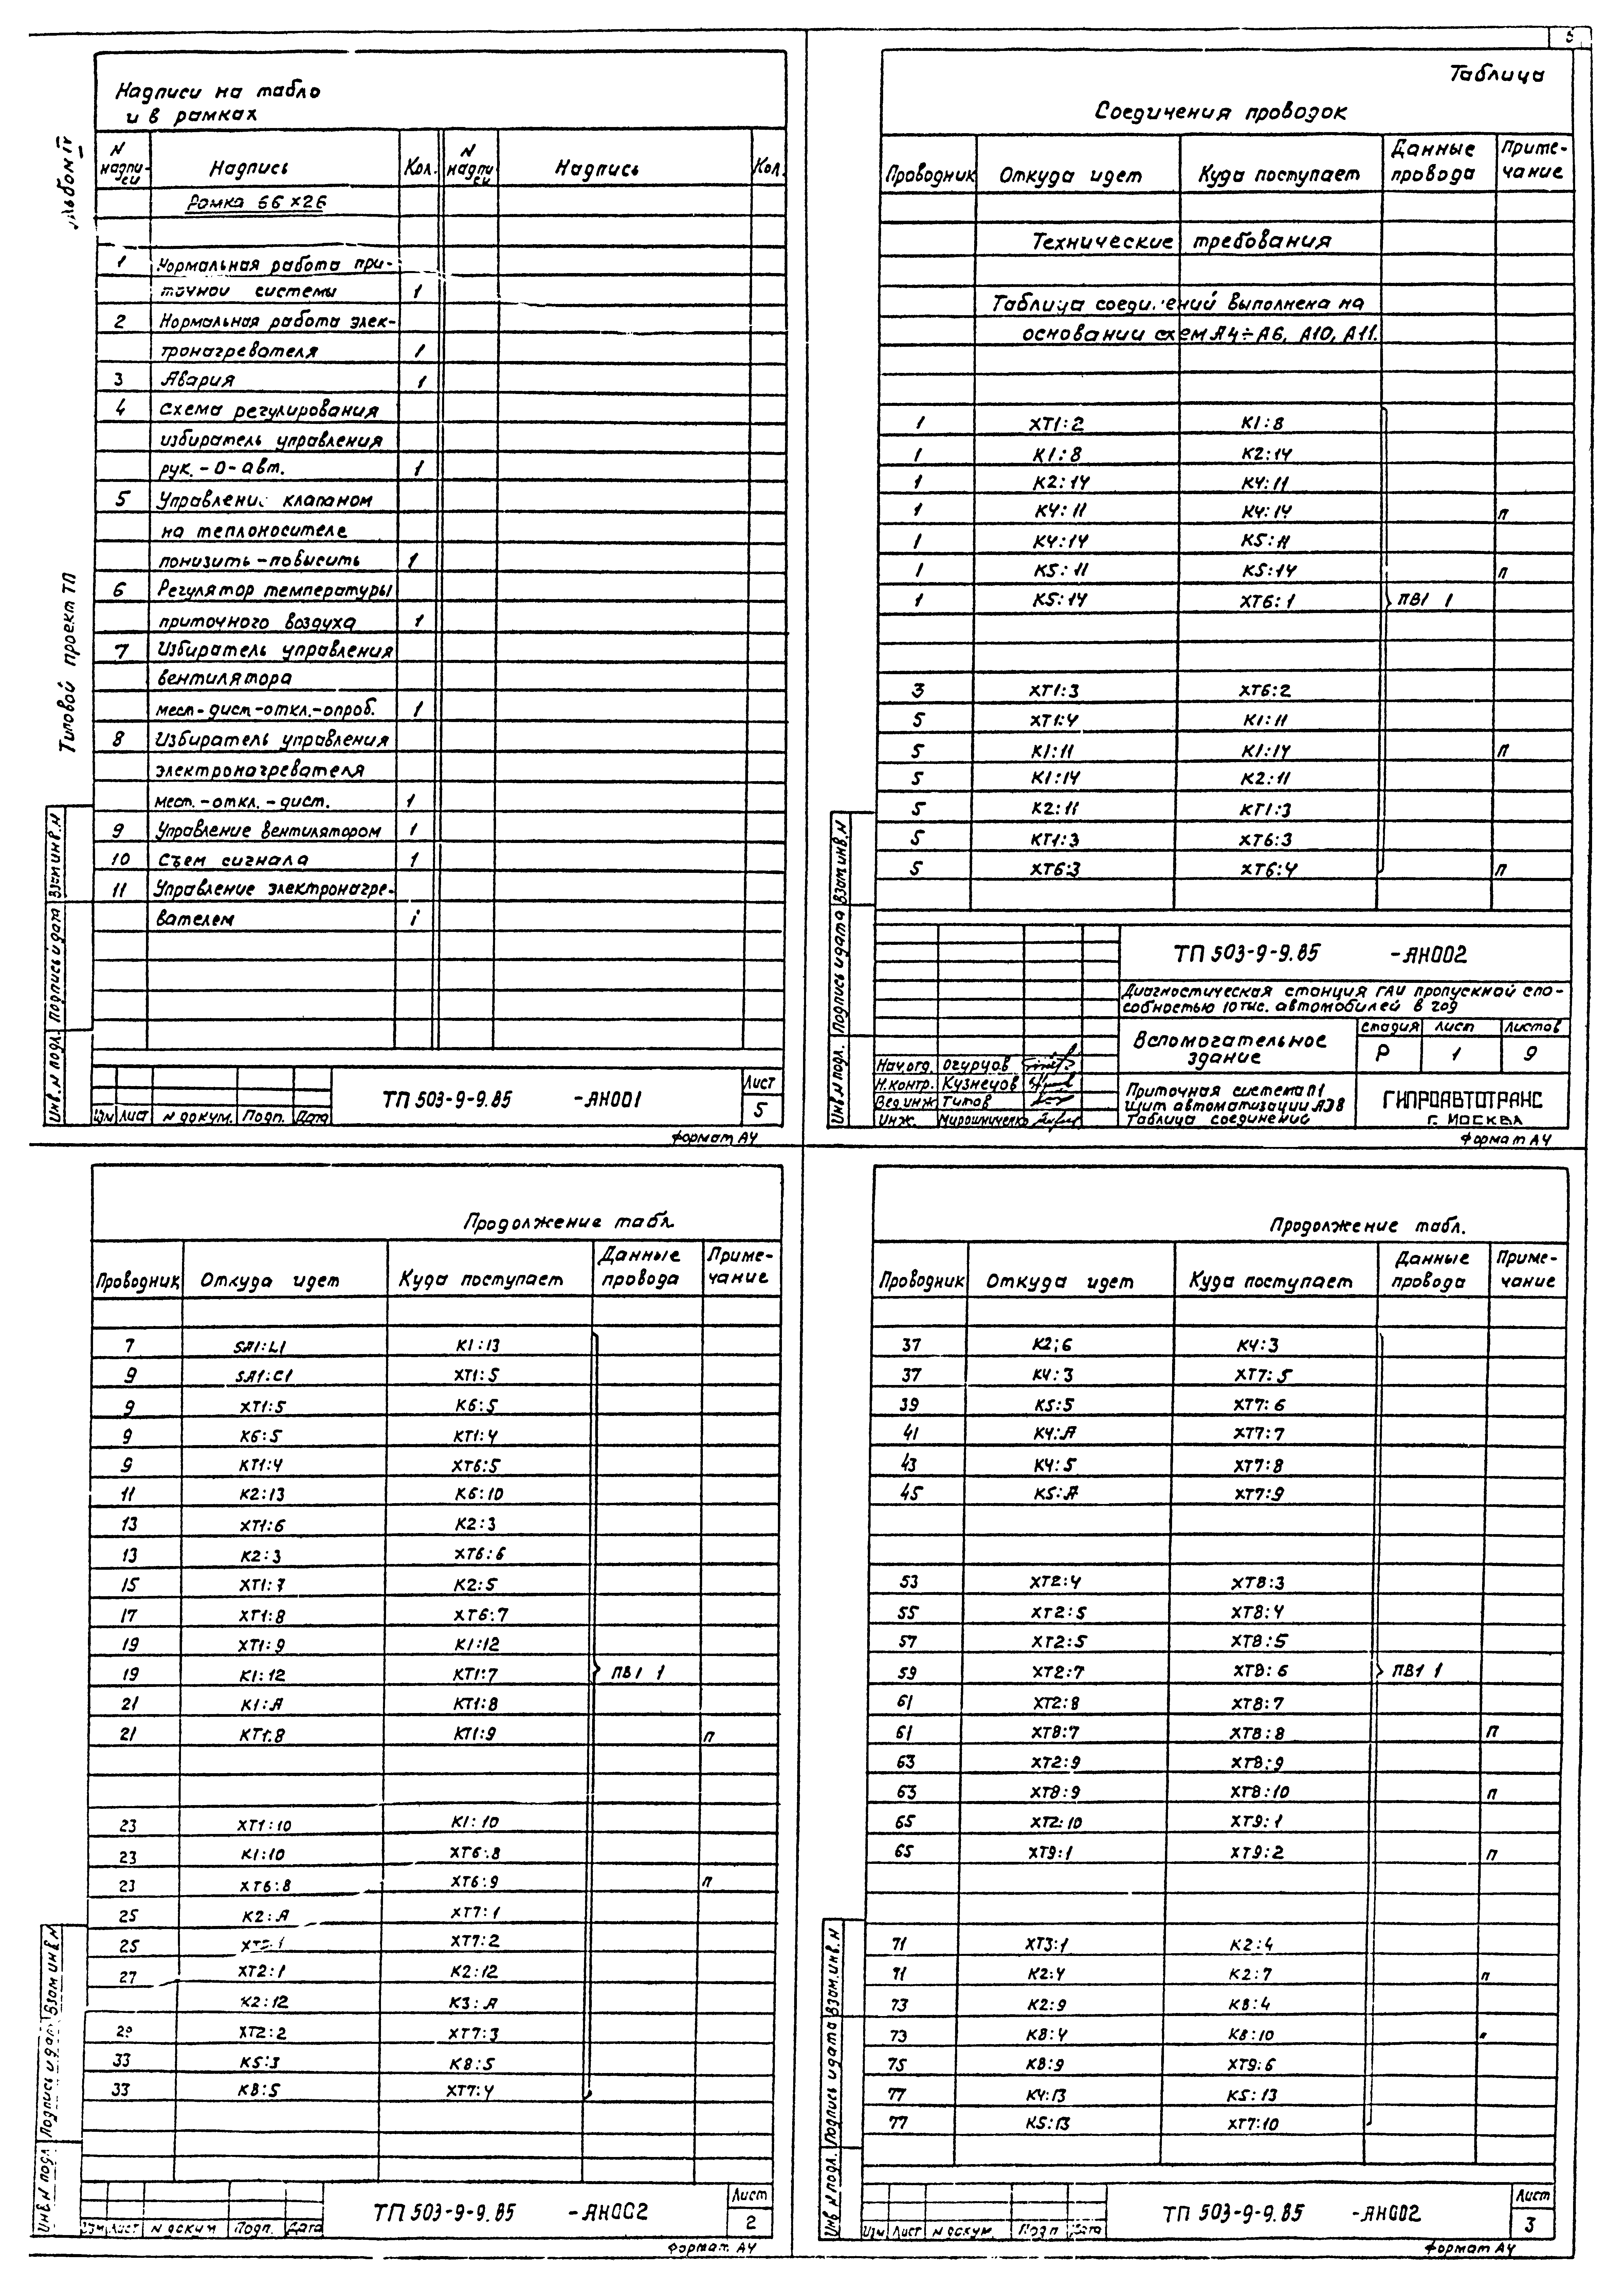 5
Альбом IV
Типовой проект ТП
Надписи на табло
и в рамках
N надписи Надпись Кол. N надписи Надпись Кол.
Рамка 66×26
1 Нормальная работа при-
точной системы 1
2 Нормальная работа элек-
тронагревателя 1
3 Авария 1
4 Схема регулирования
избиратель управления
рук. - О - авт. 1
5 Управление клапаном
на теплоносителе
понизить - повысить 1
6 Регулятор температуры
приточного воздуха 1
7 Избиратель управления
вентилятора
мест - дист - откл. - опроб. 1
8 Избиратель управления
электронагревателя
мест. - откл. - дист. 1
9 Управление вентилятором 1
10 Съем сигнала 1
11 Управление электронагре-
вателем 1
Инв. N подл. Подпись и дата Взам инв. N
Изм Лист N докум. Подп. Дата
ТП 503-9-9.85 -АН001
Лист 5
Формат А4
Таблица
Соединения проводок
Проводник Откуда идет Куда поступает Данные провода Приме-чание
Технические требования
Таблица соединений выполнена на
основании схем А4÷А6, А10, А11.
1 ХТ1:2 К1:8
1 К1:8 К2:14
1 К2:14 К4:11
1 К4:11 К4:14 п
1 К4:14 К5:11
1 К5:11 К5:14 п
1 К5:14 ХТ6:1 ПВ1 1
3 ХТ1:3 ХТ6:2
5 ХТ1:4 К1:11
5 К1:11 К1:14 п
5 К1:14 К2:11
5 К2:11 КТ1:3
5 КТ1:3 ХТ6:3
5 ХТ6:3 ХТ6:4 п
Инв N подл. Подпись и дата Взам инв. N
ТП 503-9-9.85 -АН002
Диагностическая станция ГАИ пропускной спо-
собностью 10 тыс. автомобилей в год
Вспомогательное
здание
Стадия Лист Листов
Р 1 9
Нач отд. Огурцов
Н.контр. Кузнецов
Вед.инж Титов
Инж. Мирошниченко
Приточная система П1
Щит автоматизации АЭ8
Таблица соединений
ГИПРОАВТОТРАНС
г. Москва
Формат А4
Продолжение табл.
Проводник Откуда идет Куда поступает Данные провода Приме-чание
7 SA1:L1 К1:13
9 SA1:C1 ХТ1:5
9 ХТ1:5 К6:5
9 К6:5 КТ1:4
9 КТ1:4 ХТ6:5
11 К2:13 К6:10
13 ХТ1:6 К2:3
13 К2:3 ХТ6:6
15 ХТ1:7 К2:5
17 ХТ1:8 ХТ6:7
19 ХТ1:9 К1:12
19 К1:12 КТ1:7 ПВ1 1
21 К1:А КТ1:8
21 КТ1:8 КТ1:9 п
23 ХТ1:10 К1:10
23 К1:10 ХТ6:8
23 ХТ6:8 ХТ6:9 п
25 К2:А ХТ7:1
25 ХТ7:2
27 ХТ2:1 К2:12
К2:12 К3:А
29 ХТ2:2 ХТ7:3
33 К5:3 К8:5
33 К8:5 ХТ7:4
Инв. N подл Подпись и дат Взам инв. N
Изм Лист N докум Подп. Дата
ТП 503-9-9.85 -АН002
Лист 2
Формат А4
Продолжение табл.
Проводник Откуда идет Куда поступает Данные провода Приме-чание
37 К2;6 К4:3
37 К4:3 ХТ7:5
39 К5:5 ХТ7:6
41 К4:А ХТ7:7
43 К4:5 ХТ7:8
45 К5:А ХТ7:9
53 ХТ2:4 ХТ8:3
55 ХТ2:5 ХТ8:4
57 ХТ2:5 ХТ8:5
59 ХТ2:7 ХТ8:6 ПВ1 1
61 ХТ2:8 ХТ8:7
61 ХТ8:7 ХТ8:8 п
63 ХТ2:9 ХТ8:9
63 ХТ8:9 ХТ8:10 п
65 ХТ2:10 ХТ9:1
65 ХТ9:1 ХТ9:2 п
71 ХТ3:1 К2:4
71 К2:4 К2:7 п
73 К2:9 К8:4
73 К8:4 К8:10
75 К8:9 ХТ9:6
77 К4:13 К5:13
77 К5:13 ХТ7:10
Инв N подл. Подпись и дата Взам. инв. N
Изм Лист N докум. Подп Дата
ТП 503-9-9.85 -АН002
Лист 3
Формат А4